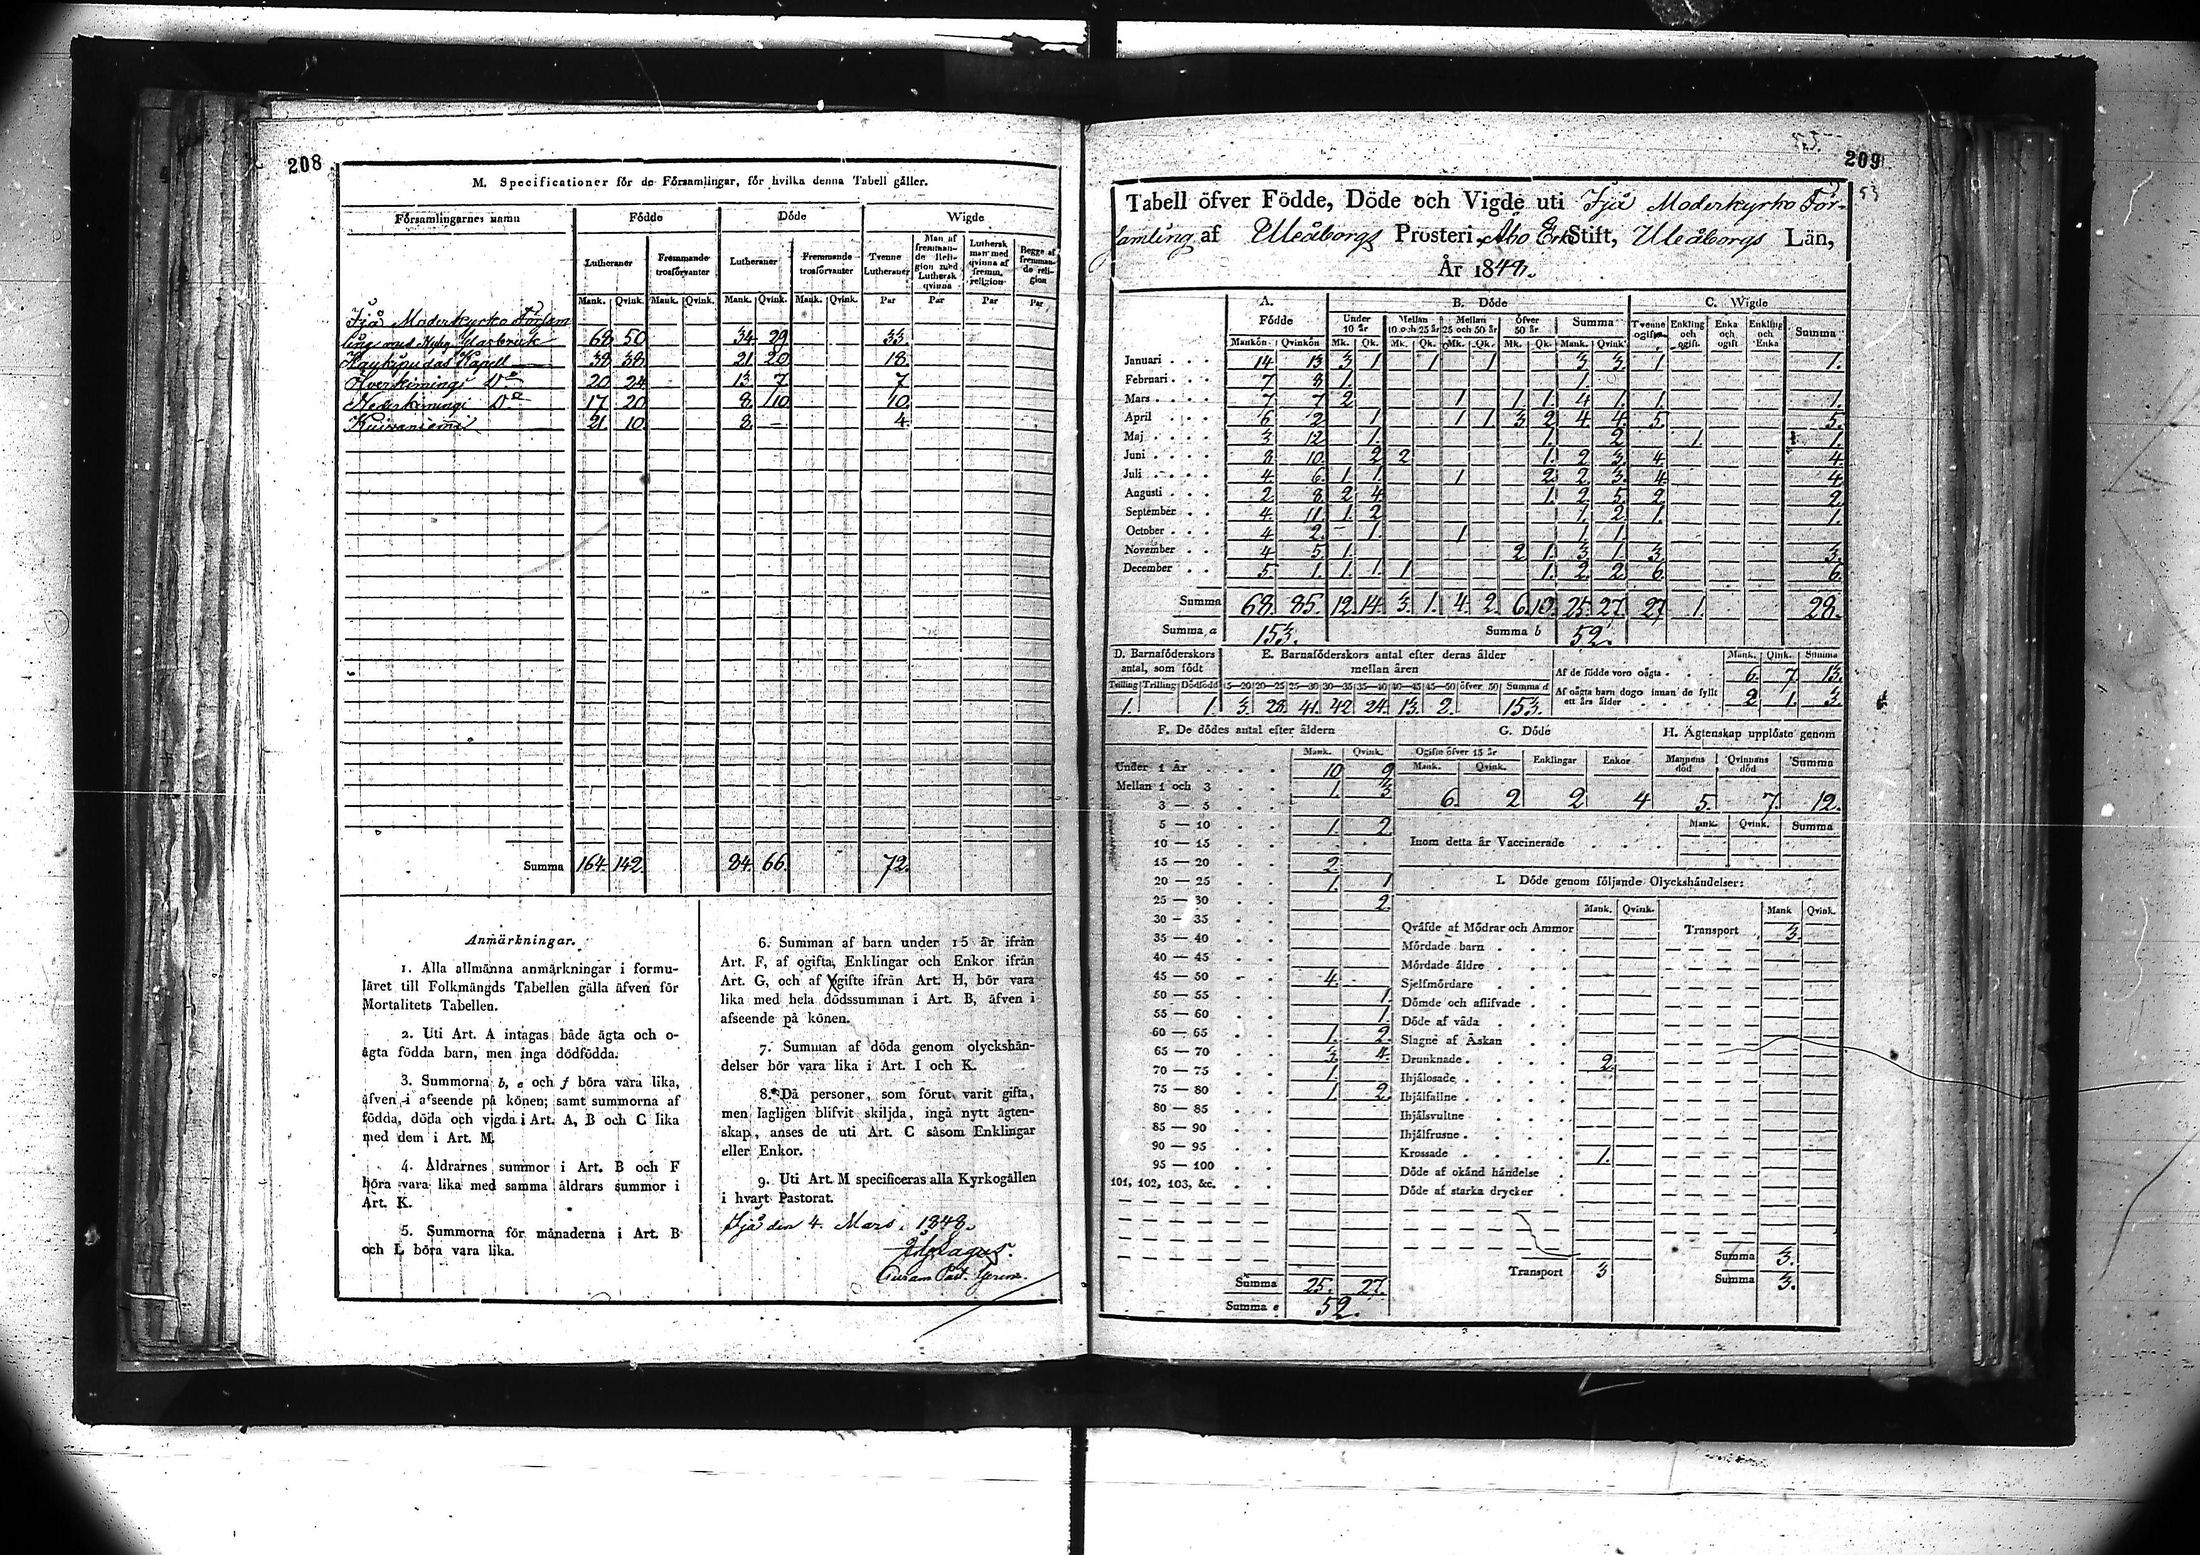 208
M. Specificationer för de Församlingar, för hvilka denna Tabell gäller.
Församlingarnes namn Födde Döde Wigde
Lutheraner Fremmande trosförvanter Lutheraner Fremmande trosförvanter Tvenne Lutheraner Man af fremmande Religion med Luthersk qvinna Luthersk man med qvinna af fremm. religion Begge af fremmande religion
Mank. Qvink. Mank. Qvink. Mank. Qvink. Mank. Qvink. Par Par Par Par
Ijå Moderkyrko Församling med Glasbruk 68 50 34 29 33
Haukipudas Kapell 38 38 21 20 18.
Öfverkimingi D:o 20 24 13 7 7
Nederkimingi D:o 17 20 8 10 10.
Kuivaniemi 21. 10. 8 — 4.
Summa 164. 142. 84. 66. 72.
Anmärkningar.
1. Alla allmänna anmärkningar i formu-
läret till Folkmängds Tabellen gälla äfven för
Mortalitets Tabellen.
2. Uti Art. A intagas både ägta och o-
ägta födda barn, men inga dödfödda.
3. Summorna b, e och f böra vara lika,
äfven i afseende på könen; samt summorna af
födda, döda och vigda i Art. A, B och C lika
med dem i Art. M.
4. Åldrarnes summor i Art. B och F
böra vara lika med samma åldrars summor i
Art. K.
5. Summorna för månaderna i Art. B
och L böra vara lika.
6. Summan af barn under 15 år ifrån
Art. F, af ogifta, Enklingar och Enkor ifrån
Art. G, och af gifte ifrån Art. H, bör vara
lika med hela dödssumman i Art. B, äfven i
afseende på könen.
7. Summan af döda genom olyckshän-
delser bör vara lika i Art. I och K.
8. Då personer, som förut varit gifta,
men lagligen blifvit skiljda, ingå nytt ägten-
skap, anses de uti Art. C såsom Enklingar
eller Enkor.
9. Uti Art. M specificeras alla Kyrkogällen
i hvart Pastorat.
Ijå den 4. Mars. 1848.
209
53
Tabell öfver Födde, Döde och Vigde uti Ijå Moderkyrko För-
samling af Uleåborgs Prosteri, Åbo Erke Stift, Uleåborgs Län,
År 1848.
A. B. Döde C. Wigde
Födde Under 10 år Mellan 10 och 25 år Mellan 25 och 50 år Öfver 50 år Summa Tvenne ogifta Enkling och ogift Enka och ogift Enkling och Enka Summa
Mankön Qvinkön Mk. Qk. Mk. Qk. Mk. Qk. Mk. Qk. Mank. Qvink.
Januari 14 13 3 1 1 1 3 3. 1 1.
Februari 7 8 1. 1.
Mars 7 7 2 1 1 1. 4 1. 1. 1.
April 6 2 1 1 1 3 2 4 4. 5. 5.
Maj 3 12 1. 1. 2 1. 1.
Juni 8 10. 2 2 1. 2 3. 4. 4.
Juli 4 6. 1 1. 1 2 2 3. 4. 4.
Augusti 2 8 2 4 1. 2. 5. 2. 2.
September 4. 11 1. 2 1. 2. 1. 1.
October 4 2. 1. 1 1. 1.
November 4 5 1. 2 1. 3. 1. 3. 3.
December 5. 1. 1. 1. 1 1. 2. 2 6. 6.
Summa 68. 85. 12. 14. 3. 1. 4. 2. 6. 10. 25. 27. 27 1. 28.
Summa a 153. Summa b 52.
D. Barnaföderskors antal, som födt E. Barnaföderskors antal efter deras ålder mellan åren Mank. Qvink. Summa
Tvilling Trilling Dödfödd 15—20 20—25 25—30 30—35 35—40 40—45 45—50 öfver 50 Summa d
Af de födde voro oägta 6. 7. 13.
Af oägta barn dogo innan de fyllt ett års ålder 2 1. 3.
1. 1. 3. 28. 41. 42 24. 13. 2. 153.
F. De dödes antal efter åldern
Mank. Qvink.
Under 1 år 10 9
Mellan 1 och 3 1. 3
3 — 5
5 — 10 1. 2
10 — 15
15 — 20 2.
20 — 25 1. 1
25 — 30 2.
30 — 35
35 — 40
40 — 45
45 — 50 4.
50 — 55 1.
55 — 60 1.
60 — 65 1. 2.
65 — 70 3. 4.
70 — 75 1.
75 — 80 1. 2.
80 — 85
85 — 90
90 — 95
95 — 100
101, 102, 103, &c.
Summa 25. 27.
Summa e 52.
G. Döde
Ogifte öfver 15 år Enklingar Enkor
Mank. Qvink.
6. 2 2 4
H. Ägtenskap upplöste genom
Mannens död Qvinnans död Summa
5. 7. 12.
Mank. Qvink. Summa
Inom detta år Vaccinerade
I. Döde genom följande Olyckshändelser:
Mank. Qvink. Mank Qvink.
Qväfde af Mödrar och Ammor Transport 3
Mördade barn
Mördade äldre
Sjelfmördare
Dömde och aflifvade
Döde af våda
Slagne af Åskan
Drunknade 2
Ihjälosade
Ihjälfallne
Ihjälsvultne
Ihjälfrusne
Krossade 1.
Döde af okänd händelse
Döde af starka drycker
Summa 3.
Transport 3 Summa 3.